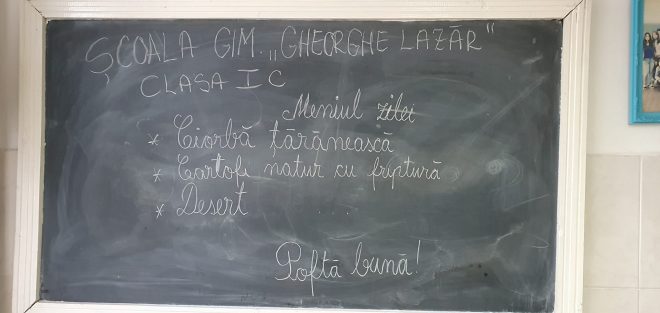 ȘCOALA GIM. „GHEORGHE LAZĂR"
CLASA I C
Meniul zilei
* Ciorbă țărănească
* Cartofi natur cu friptură
* Desert ...
Poftă bună!